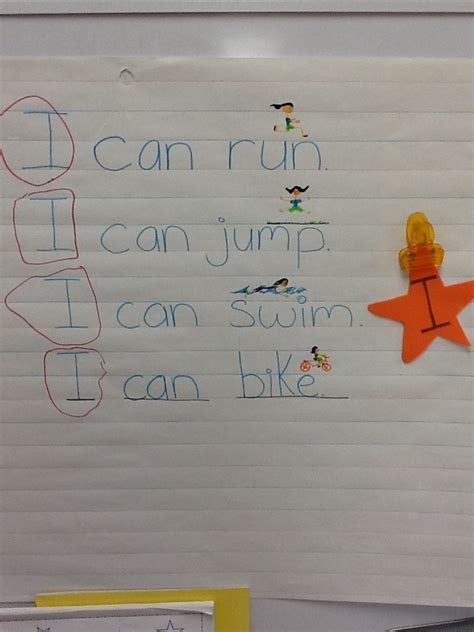 I can run.
I can jump.
I can swim.
I can bike.
I